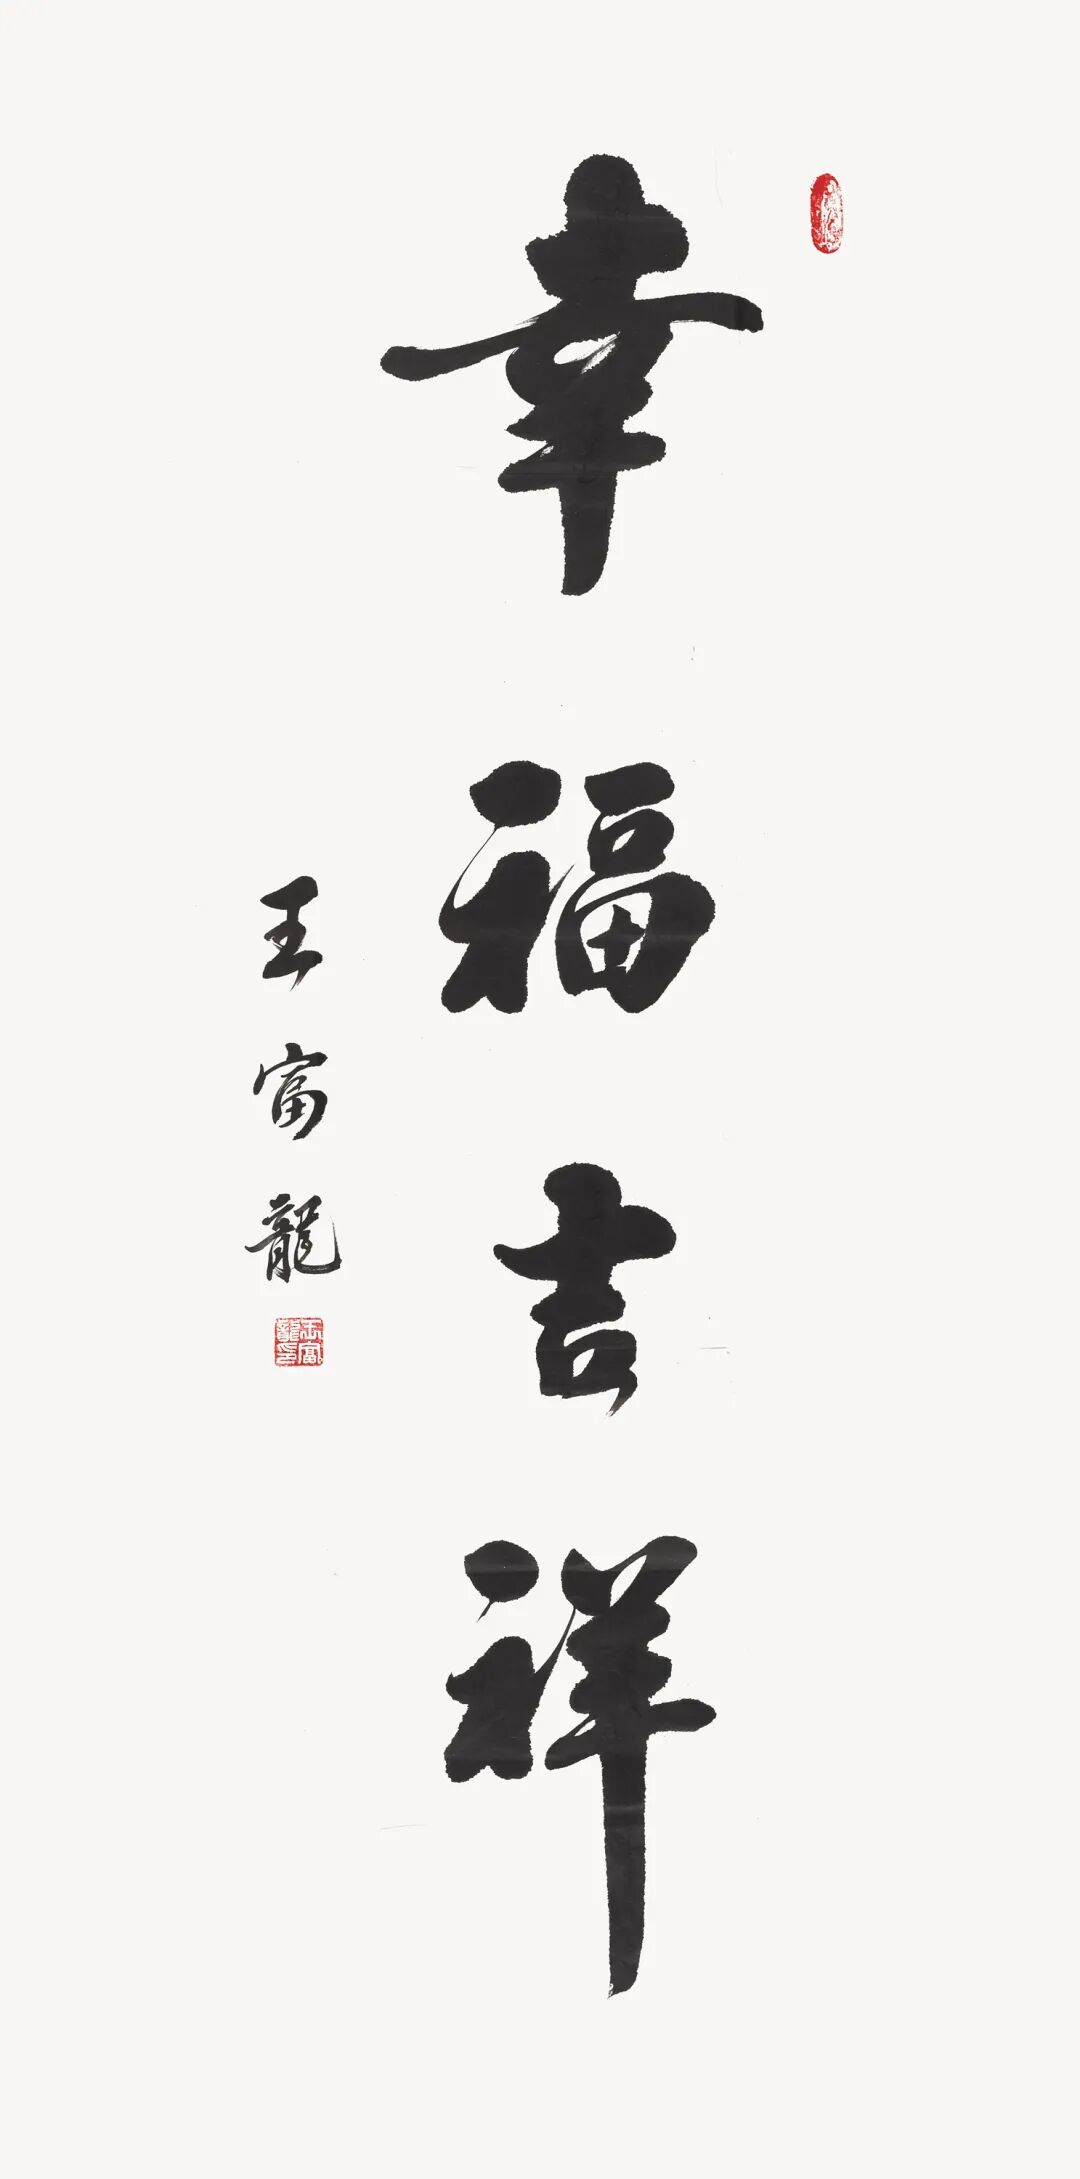 幸福吉祥
王富龍
王富龍印